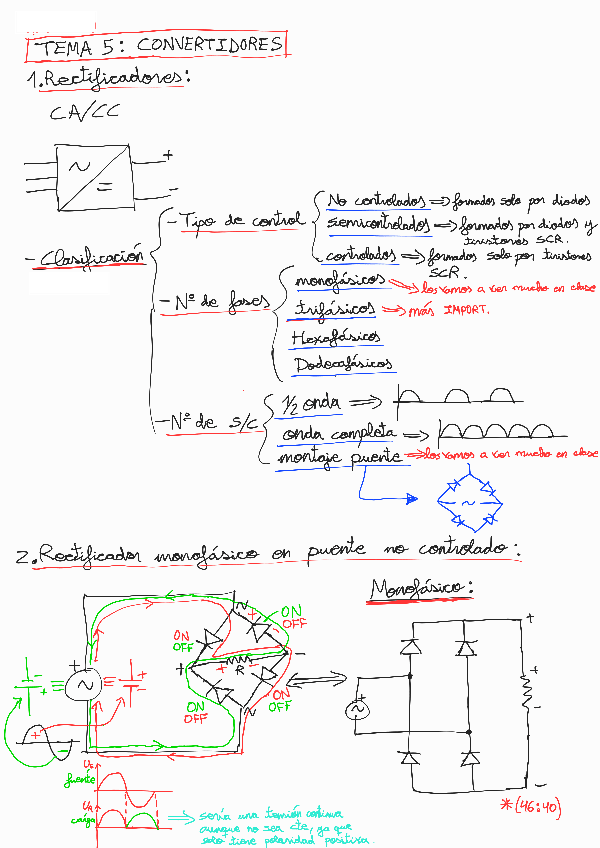 TEMA 5: CONVERTIDORES
1. Rectificadores:
CA/CC
~
=
+
-
- Clasificación
- Tipo de control
No controlados => formados solo por diodos
semicontrolados => formados por diodos y
tiristores SCR.
controlados => formados solo por tiristores
SCR.
- Nº de fases
monofásicos => los vamos a ver mucho en clase
trifásicos => más IMPORT.
Hexafásicos
Dodecafásicos
- Nº de s/c
1/2 onda =>
onda completa =>
montaje puente => los vamos a ver mucho en clase
~
2. Rectificador monofásico en puente no controlado:
Monofásico:
ON
OFF
ON
OFF
+
-
R
+
-
ON
OFF
ON
OFF
~
+
-
+
-
+
~
+
-
+
-
+
-
*(46:40)
fuente
caída
=> sería una tensión continua
aunque no sea cte, ya que
solo tiene polaridad positiva.